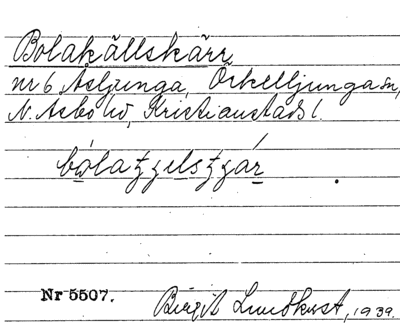 Bolakällskärr
nr 6 Åsljunga, Örkelljunga sn,
N. Åsbo hd, Kristianstads l.
Nr 5507.
Birgit Lundkvist, 1939.